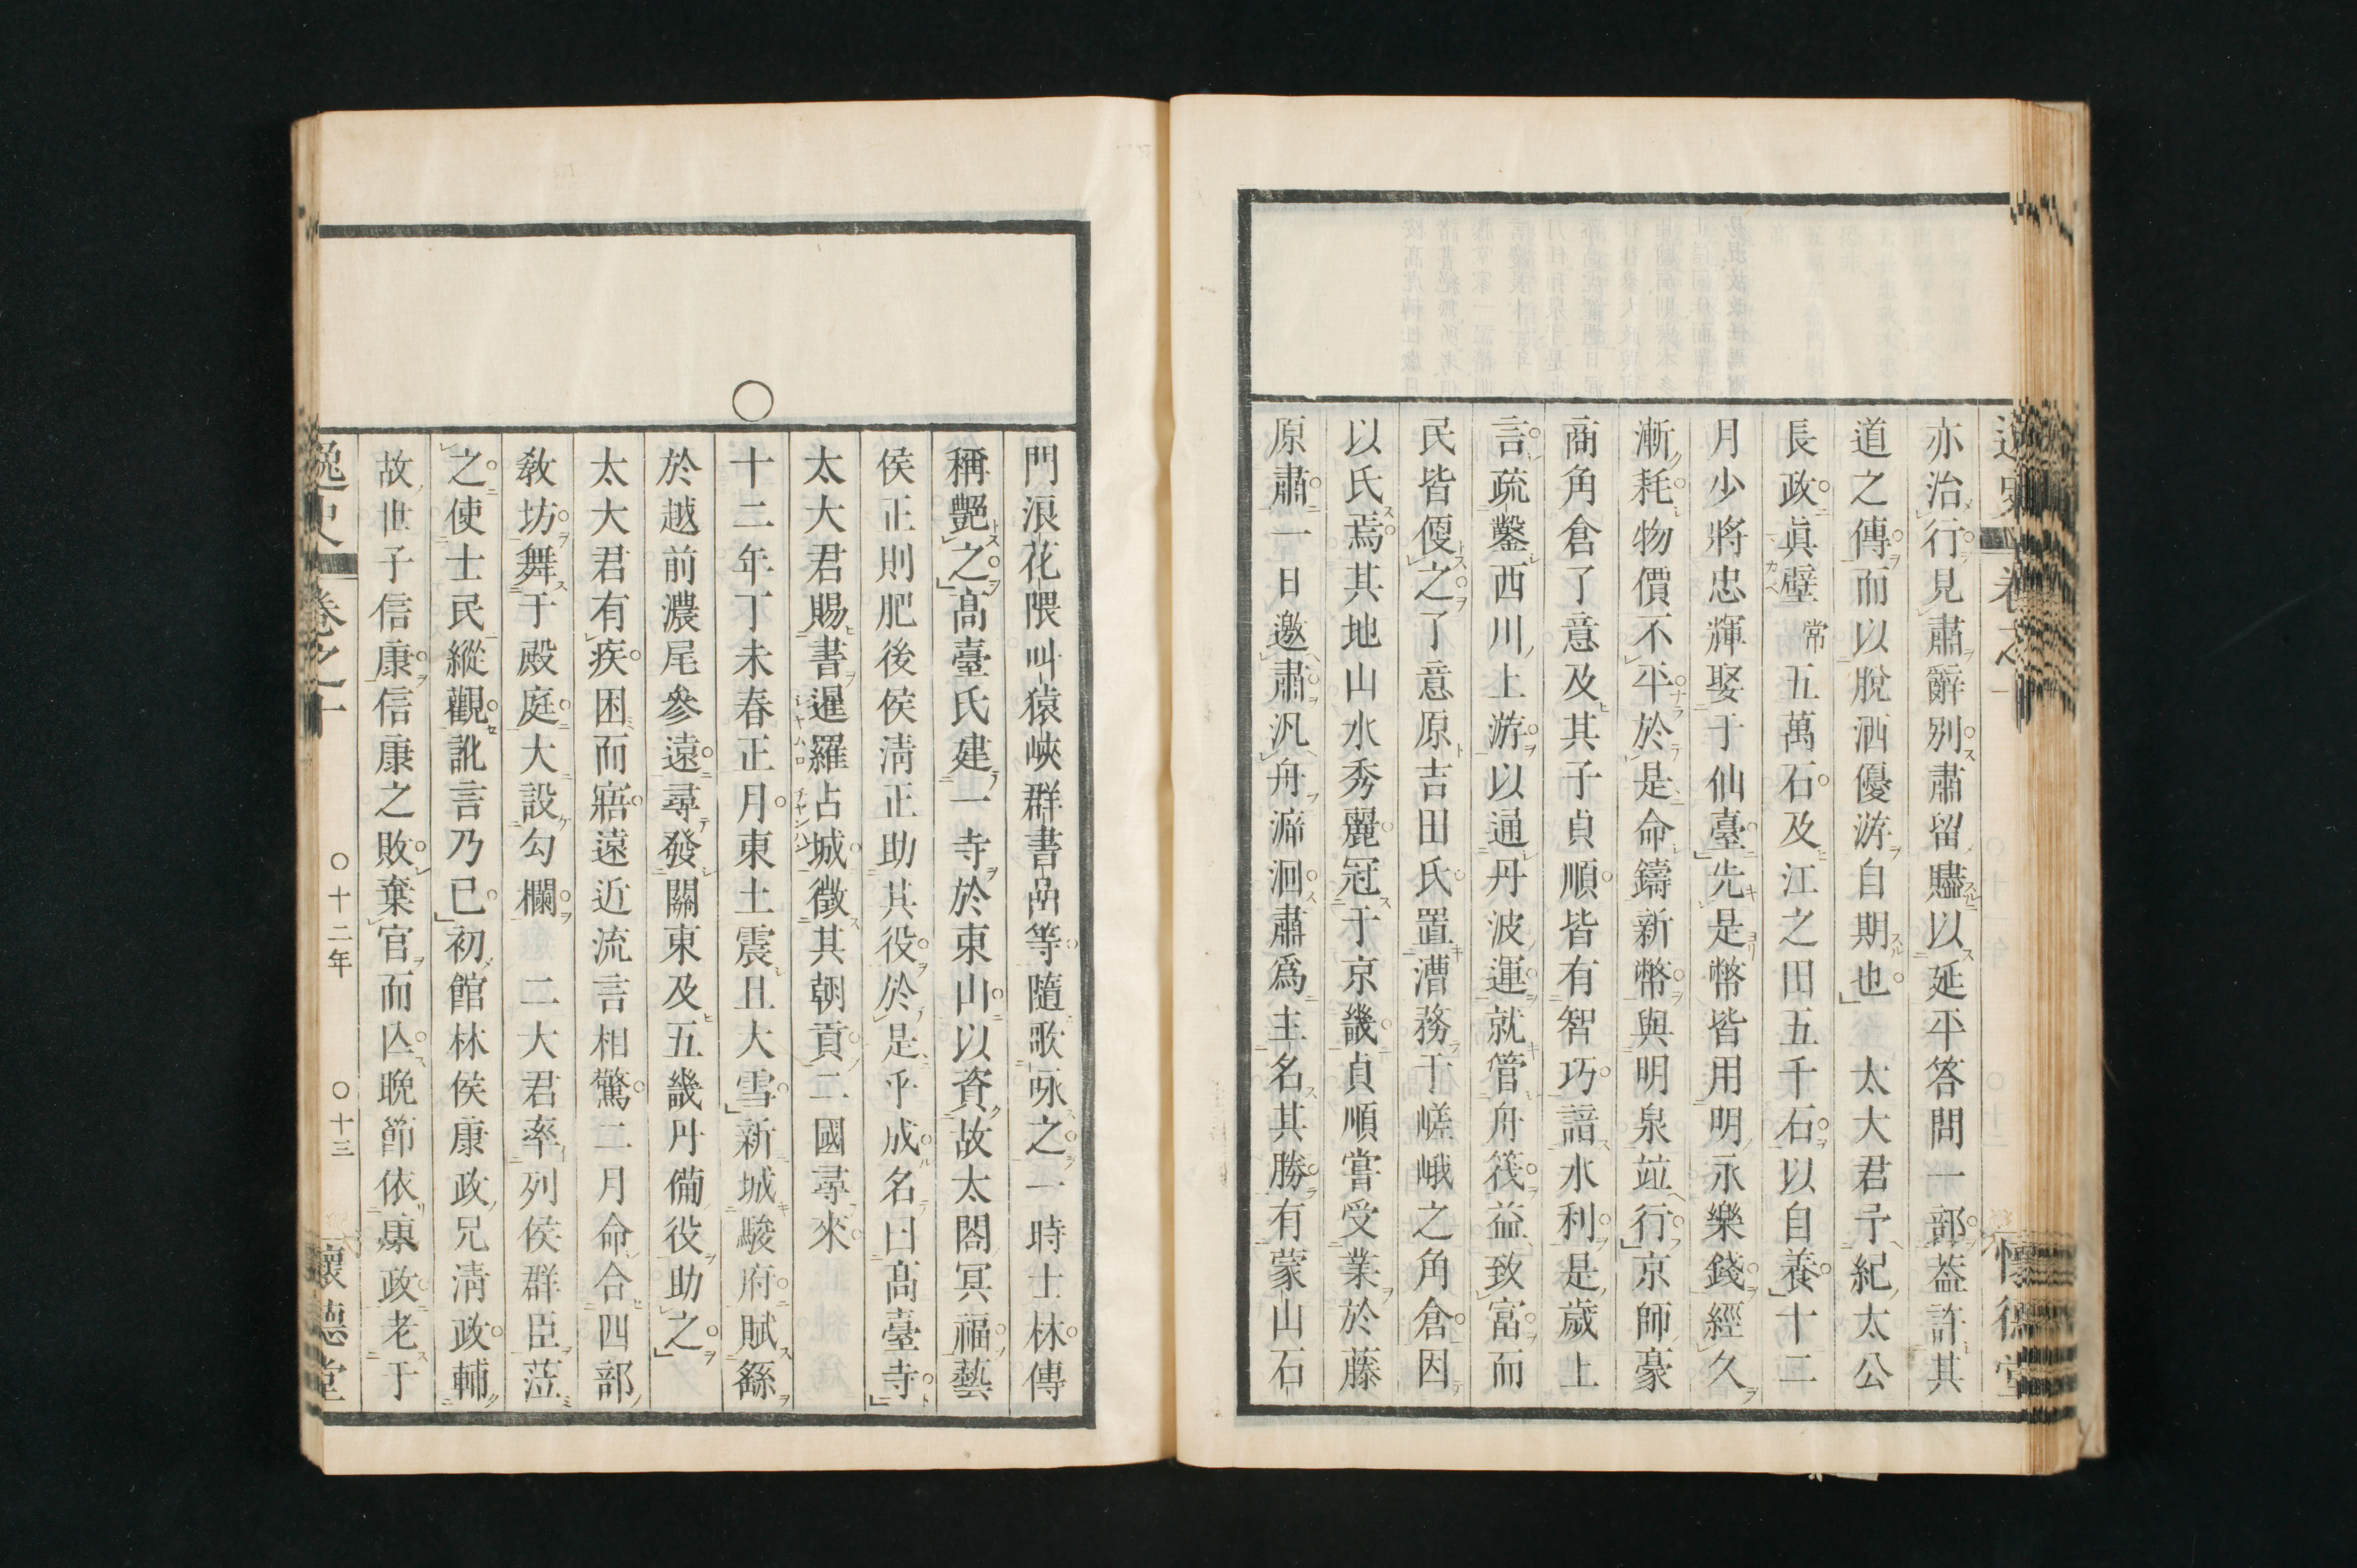 亦治行見肅辭別肅留贐以延平答問一部葢許其
道之傳而以脫洒優游自期也　太大君子紀太公
長政眞壁常五萬石及江之田五千石以自養十二
月少將忠輝娶于仙臺先是幣皆用明永樂錢經久
漸耗物價不平於是命鑄新幣與明泉竝行京師豪
商角倉了意及其子貞順皆有智巧諳水利是歲上
言疏鑿西川上游以通丹波運就管舟筏益致富而
民皆傻之了意原吉田氏置漕務于嵯峨之角倉因
以氏焉其地山水秀麗冠于京畿貞順嘗受業於藤
原肅一日邀肅汎舟泝洄肅爲主名其勝有蒙山石
門浪花隈叫猿峽群書嵒等隨歌咏之一時士林傳
稱艷之高臺氏建一寺於東山以資故太閤冥福藝
侯正則肥後侯淸正助其役於是乎成名曰高臺寺
太大君賜書暹羅占城徵其朝貢二國尋來
〇
十二年丁未春正月東土震且大雪新城駿府賦繇
於越前濃尾參遠尋發關東及五畿丹備役助之
太大君有疾困而寤遠近流言相驚二月命合四部
敎坊舞于殿庭大設勾欄　二大君率列侯群臣莅
之使士民縱觀訛言乃已初館林侯康政兄淸政輔
故世子信康信康之敗棄官而亾晚節依康政老于
逸史　卷之十　〇十二年　〇十三　懷德堂